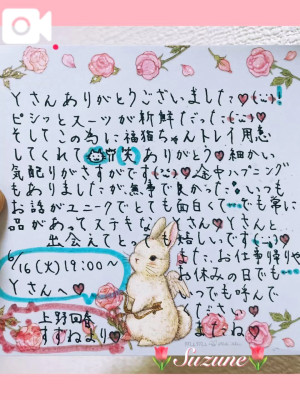 Yさんありがとうございました
ピシッとスーツが新鮮だった
そしてこの為に福猫ちゃんトレイ用意
してくれて(大)ありがとう細かい
気配りがさすがです途中ハプニング
もありましたが無事で良かった。いつも
お話がユニークでとても面白くでも常に
品があってステキなYさんYさんと
出会えてとっても嬉しいです
また、お仕事帰りや
お休みの日でも
いつでも呼んで
ください
ますね
6/16(火)19:00〜
Yさんへ
上野回春
すずねより
Suzune